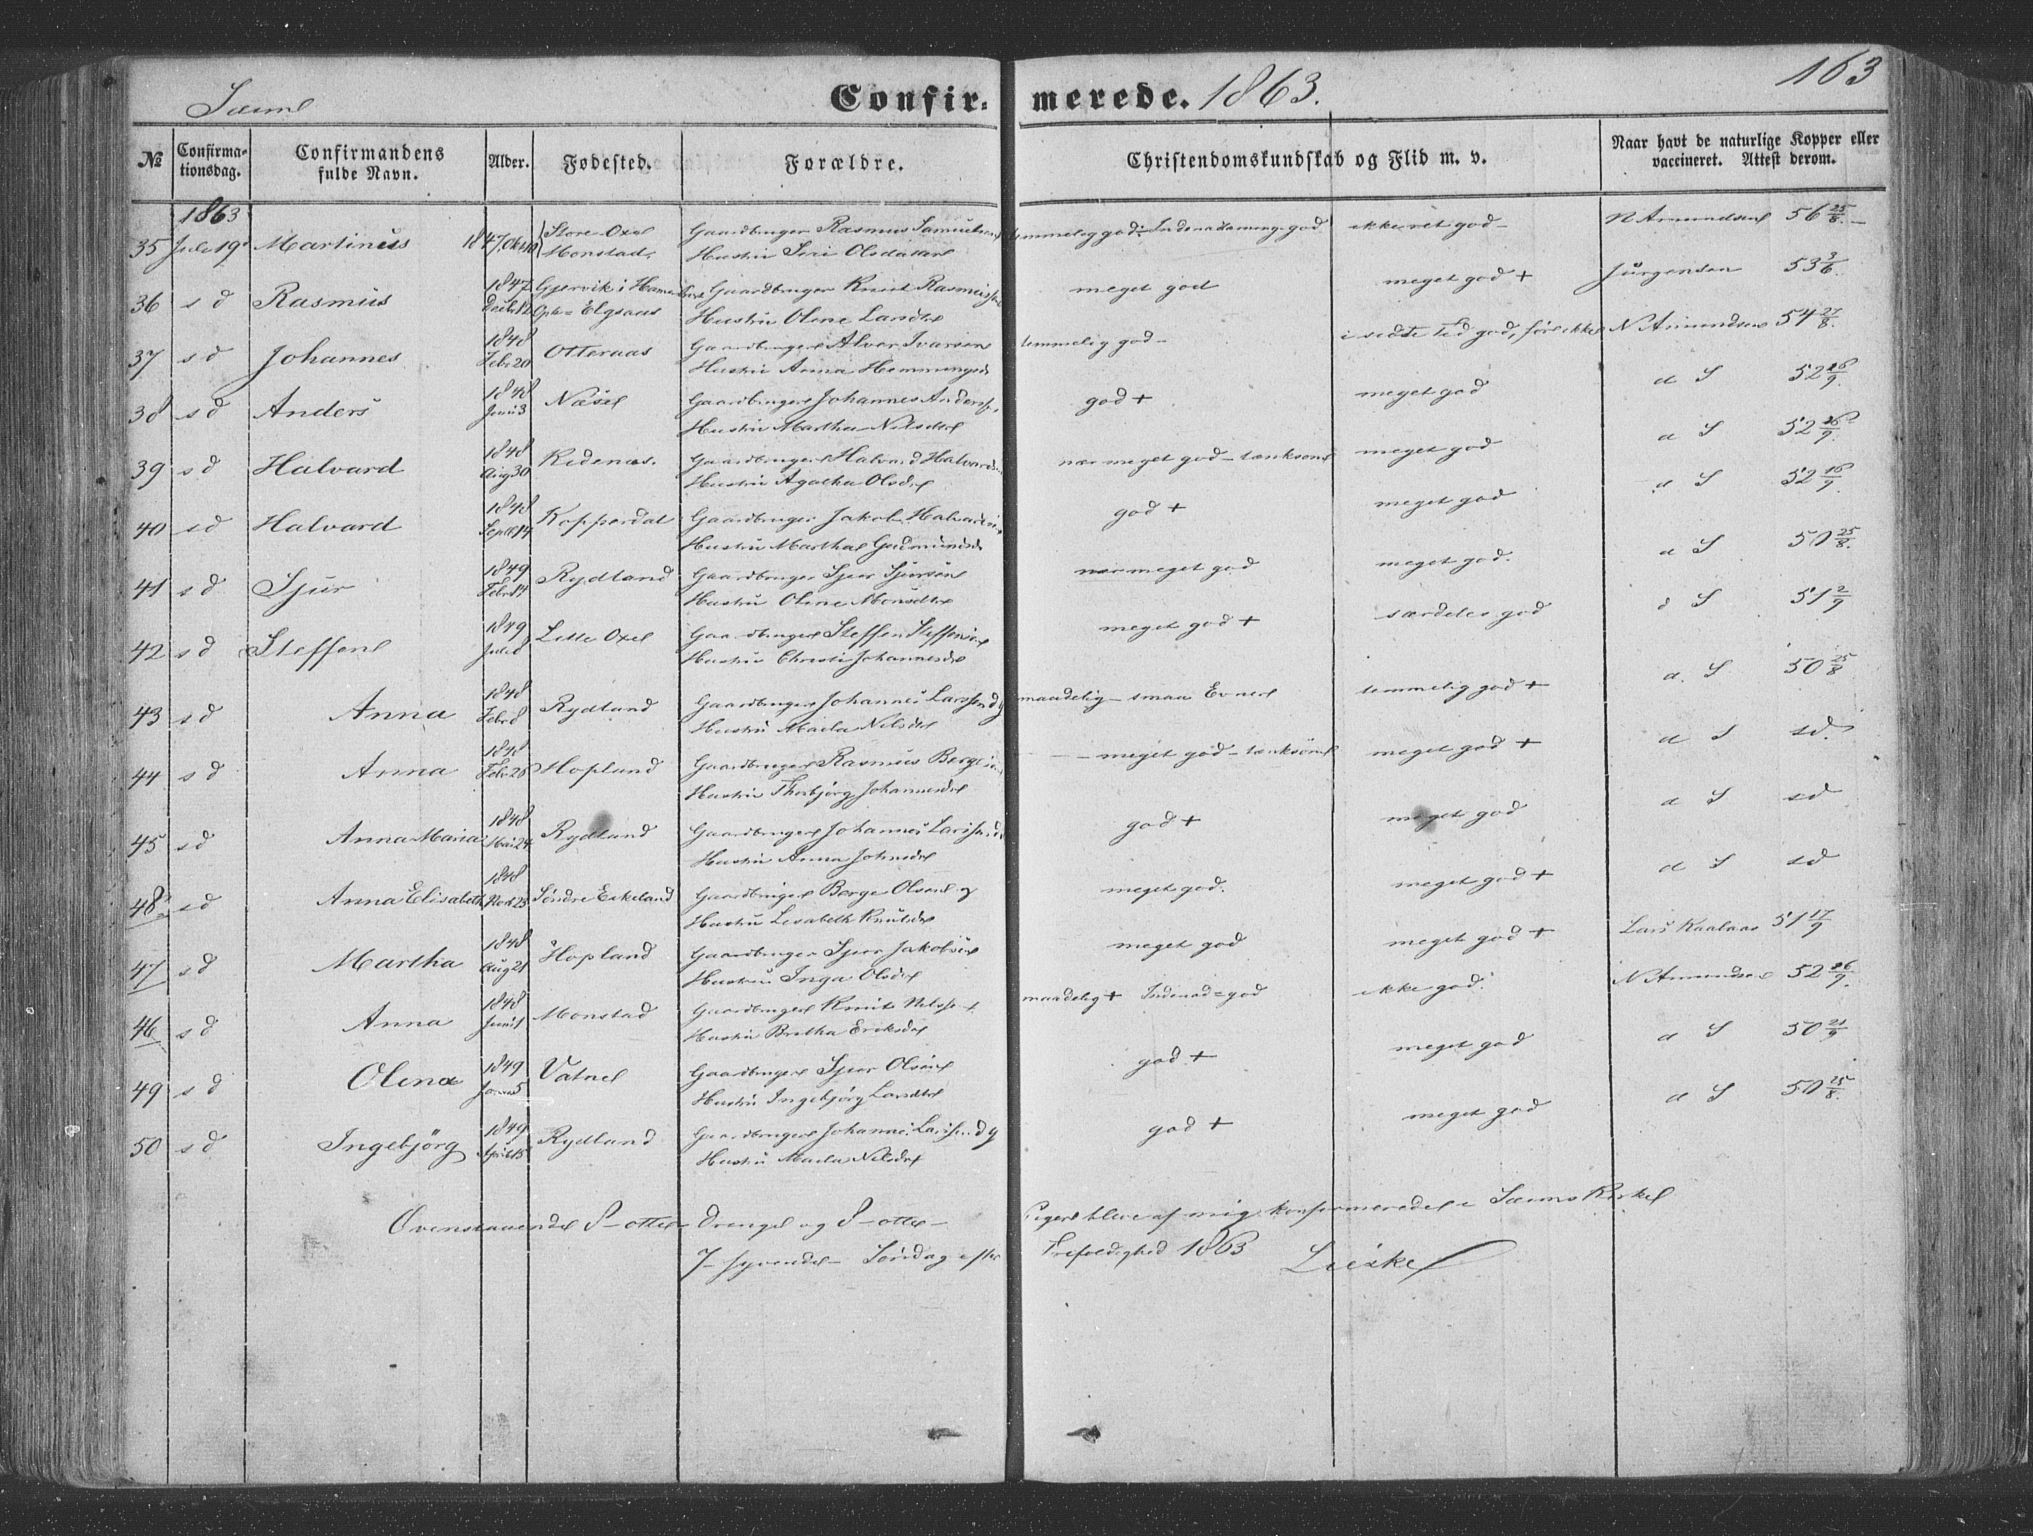 163
Confir= merede. 1863.
№ Confirma-tionsdag. Confirmandens fulde Navn. Alder. Fødested. Forældre. Christendomskundskab og Flid m. v. Naar havt de naturlige Kopper eller vaccineret. Attest derom.
1863
35 Juli 19 Martinus 1847 Store Oxel Monstad. Gaardbruger Rasmus Hustru Siri temmelig god ikke ret god N Amundsen 56 25/8
36 s d Rasmus 1847 Gjervik i Elgsaas Gaardbruger Knut Rasmuss Hustru Olene Larsdtr meget god meget god + Jürgensen 53 3/6
37 s d Johannes 1848 Febr 20 Otteraas Gaardbruger Alver Ivarsen Hustru Anna Hemmingsd temmelig god N Amundsen 54 27/8
38 s d Anders 1848 Juni 3 Næsel Gaardbruger Johannes Anderss Hustru Martha Nilsdtr god + meget god d S 52 26/9
39 s d Halvard 1848 Aug 30 Gaardbruger Halvard Halvards Hustru Agatha Olsdtr nær meget god meget god d S 52 26/9
40 s d Halvard 1848 Septb 14 Kopperdal Gaardbruger Jakob Halvards Hustru Martha Gudmundsd god + meget god d S 52 16/9
41 s d Sjur 1849 Febr 14 Rydland Gaardbruger Sjur Sjursen Hustru Oline Monsdtr nær meget god meget god. d S 50 25/8
42 s d Steffen 1849 Litle Oxel Gaardbruger Steffen Steffens Hustru Christi Johannesd meget god + særdeles god d S 51 2/9
43 s d Anna 1848 Febr 8 Rydland Gaardbruger Johannes Larssen Hustru Maela Nilsdtr maadelig - smaa Evner temmelig god + d. S 50 25/8
44 s d Anna 1848 Febr 28 Hopland Gaardbruger Rasmus Hustru Thorbjørg Johannesd meget god meget god + d S sd.
45 s d Anna Maria 1848 Mai 24 Rydland Gaardbruger Johannes Larss Hustru Anna god + meget god d S sd
48 sd Anna Elisabeth 1848 Søndre Eikeland Gaardbruger Børge Olsen og Hustru Lisabeth Knutsd meget god. meget god + d S sd
47 sd Martha 1848 Aug 21 Hopland Gaardbruger Sjur Jakobsen Hustru Inga Olsdtr meget god meget god + Lars Kaalaas 51 17/9
46 s d Anna 1848 Juni 1 Monstad Gaardbruger Knut Hustru Britha Eriksd maadelig + ikke god. N Amundsen 52 26/9
49 s d Olina 1849 Januar 5 Vatnel Gaardbruger Sjur Olsen Hustru Ingebjørg Larsdtr god + meget god d S 50 21/9
50 s d Ingebjörg 1849 April 15 Rydland Gaardbruger Johannes Larssen Hustru Maela Nilsd god + meget god d S 50 25/8
Ovenstaaende 8 - otte - Drenge og 8 - otte - Piger bleve af mig konfirmerede i Sæims Kirke
7 - syvende - Søndag efter Trefoldighed 1863